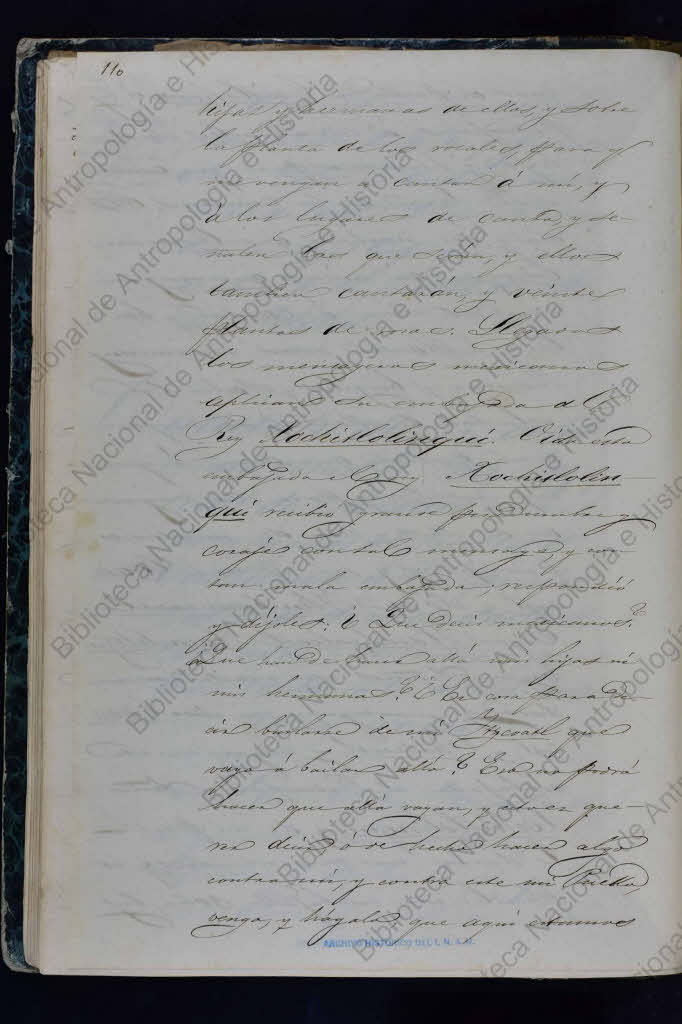 110
hijas y hermanas de ellos, y sobre
la planta de los rosales, para q.
me vengan á cantar á mí, y
á los lugares de canto, y se-
ñalen los que serán, y ellos
tambien cantarán, y veinte
plantas de rosas. Llegaron
los mensageros mexicanos
esplicaron su embajada al
Rey Xochitlolinqui. Oida esta
embajada el rey Xochitlolin-
qui recibió grande pesadumbre y
coraje con tal mensage, y con
tan mala embajada; respondió
y díjoles: ¿Que decis mexicanos?
¿Que han de hacer allá mis hijas ni
mis hermanas? ¿Es cosa para de-
cir burlarse de mí Ytzcoatl que
vaya á bailar allá? Eso no podrá
hacer que allá vayan, y esto es que-
rer decir, ó de hecho hacer algo
contra mí, y contra este mi Pueblo,
venga, y hágalo que aquí estamos
ARCHIVO HISTORICO DEL I. N. A. H.
Biblioteca Nacional de Antropología e Historia